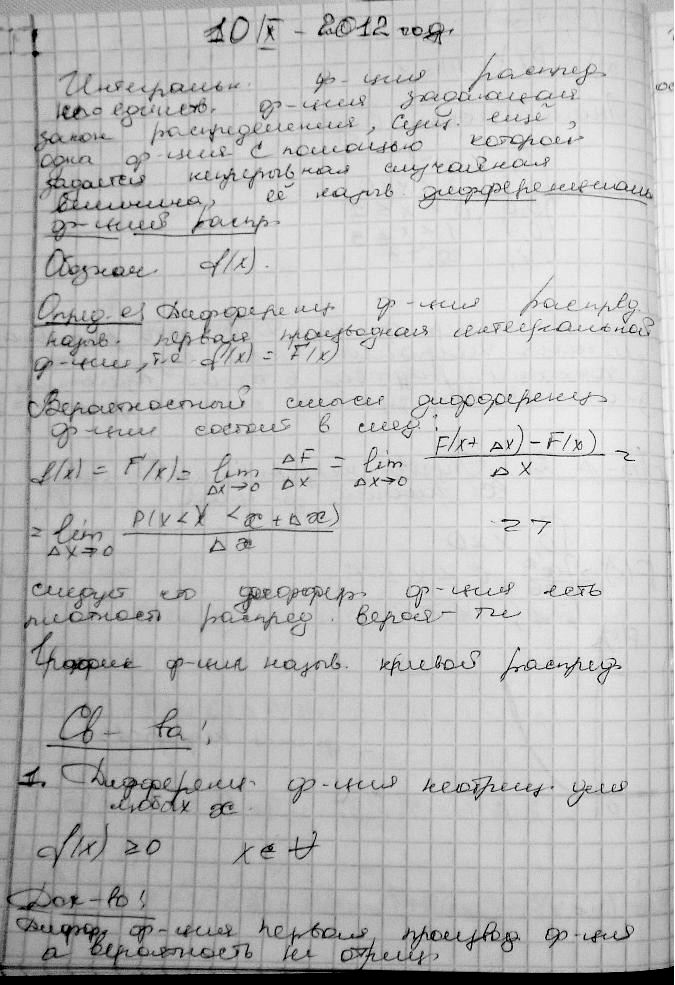 10/IX - 2012 год.
Интегральн. ф-ция распред.
не единств. ф-ция задающая
закон распределения, сущ. ещё
одна ф-ция с помощью которой
задается непрерывная случайная
величина, её назыв. дифференциальн
ф-цией распр.
Обознач. f(x).
Опред-е Дифференц ф-ция распред.
назыв. первая производная интегральной
ф-ции, т.е f(x) = F'(x)
Вероятностный смысл дифференц
ф-ции состоит в след:
f(x) = F'(x) = lim Δx→0 ΔF/Δx = lim Δx→0 (F(x+Δx)-F(x))/Δx =
= lim Δx→0 P(x<X<x+Δx)/Δx =>
следует что дифферр ф-ция есть
плотность распред. вероя-ти
График ф-ции назыв. кривой распред
Св-ва:
1. Дифференц. ф-ция неотриц. для
любых x
f(x) ≥0 x∈∀
Док-во:
Дифф. ф-ция первая производ ф-ция
а вероятность не отриц.